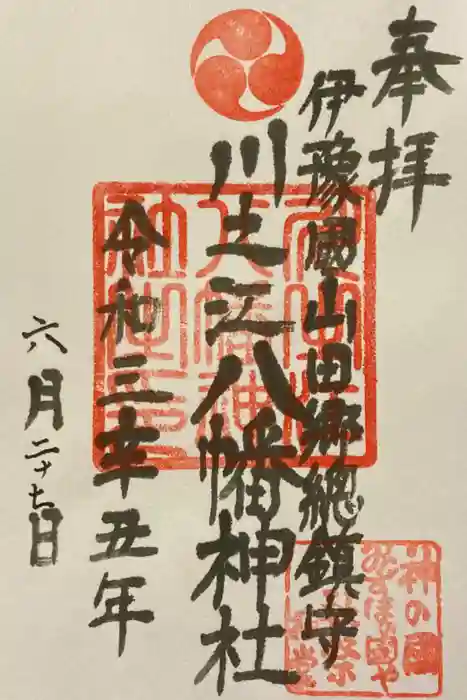 奉拝
伊豫國山田郷總鎮守
川之江八幡神社
令和三辛丑年
六月二十七日